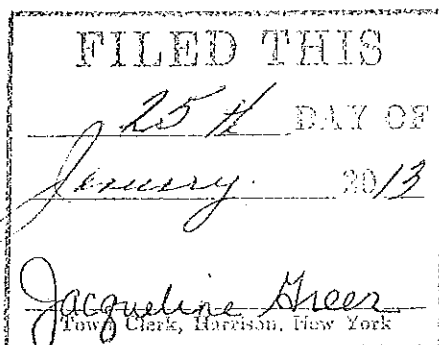 FILED THIS
25th DAY OF
January. 2013
Jacqueline Greer
Town Clerk, Harrison, New York